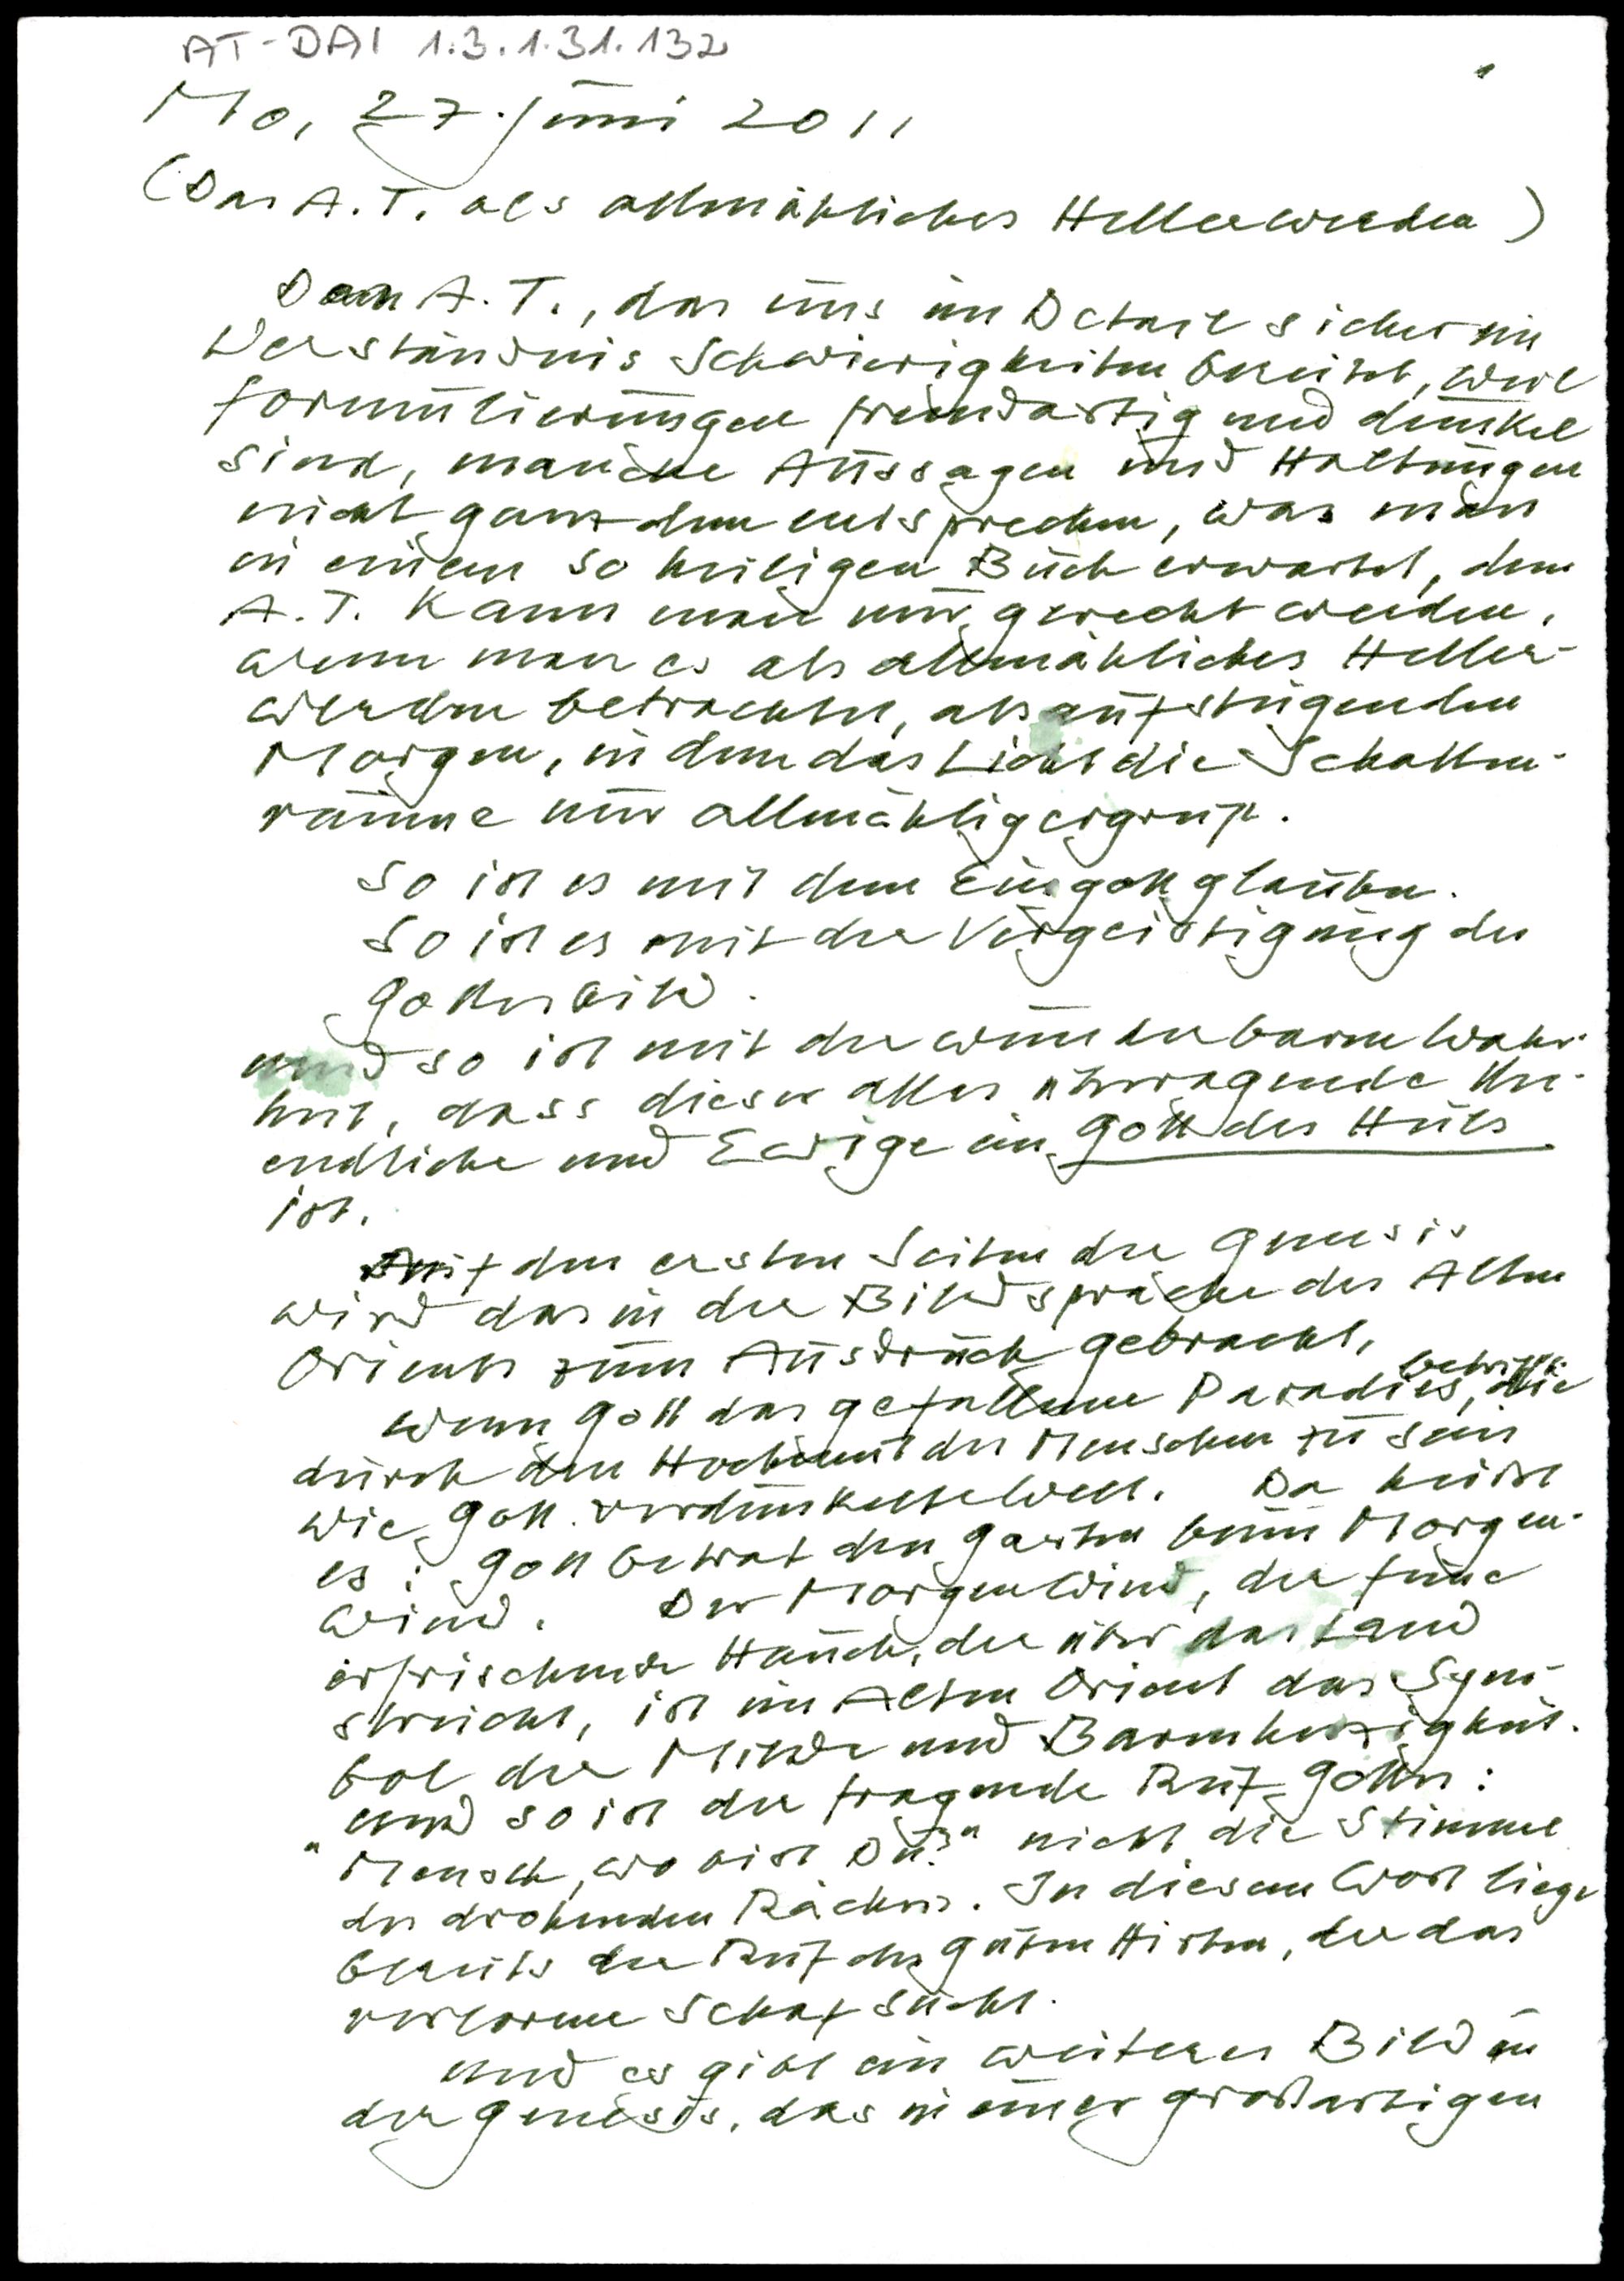 AT-DAI 1.3.1.31.132
1
Mo, 27. Juni 2011
(Das A.T. als allmähliches Hellerwerden)
Dem A.T., das uns im Detail sicher im
Verständnis Schwierigkeiten bereitet, weil
Formulierungen fremdartig und dunkel
sind, manche Aussagen und Haltungen
nicht ganz dem entsprechen, was man
in einem so heiligen Buch erwartet, dem
A.T. kann man nur gerecht werden,
wenn man es als allmähliches Heller-
werden betrachtet, als aufsteigenden
Morgen, in dem das Licht die Schatten-
räume nur allmählig ergreift.
So ist es mit dem Eingottglauben.
So ist es mit der Vergeistigung des
Gottesbild.
und so ist mit der wunderbaren Wahr-
heit, dass dieser alles überragende Un-
endliche und Ewige ein Gott des Heils
ist.
Auf den ersten Seiten der Genesis
wird das in der Bildsprache des Alten
Orients zum Ausdruck gebracht,
wenn Gott das gefallene Paradies betritt, die
durch den Hochmut des Menschen zu sein
wie Gott verdunkelte Welt. Da heißt
es: Gott betrat den Garten beim Morgen-
wind. Der Morgenwind, der feine
erfrischende Hauch, der über das Land
streicht, ist im Alten Orient das Sym-
bol der Milde und Barmherzigkeit.
und so ist der fragende Ruf Gottes:
"Mensch, wo bist Du?" nicht die Stimme
des drohenden Rächers. In diesem Wort liegt
bereits der Ruf des guten Hirten, der das
verlorene Schaf sucht.
und es gibt ein weiteres Bild in
der Genesis, das in einer großartigen